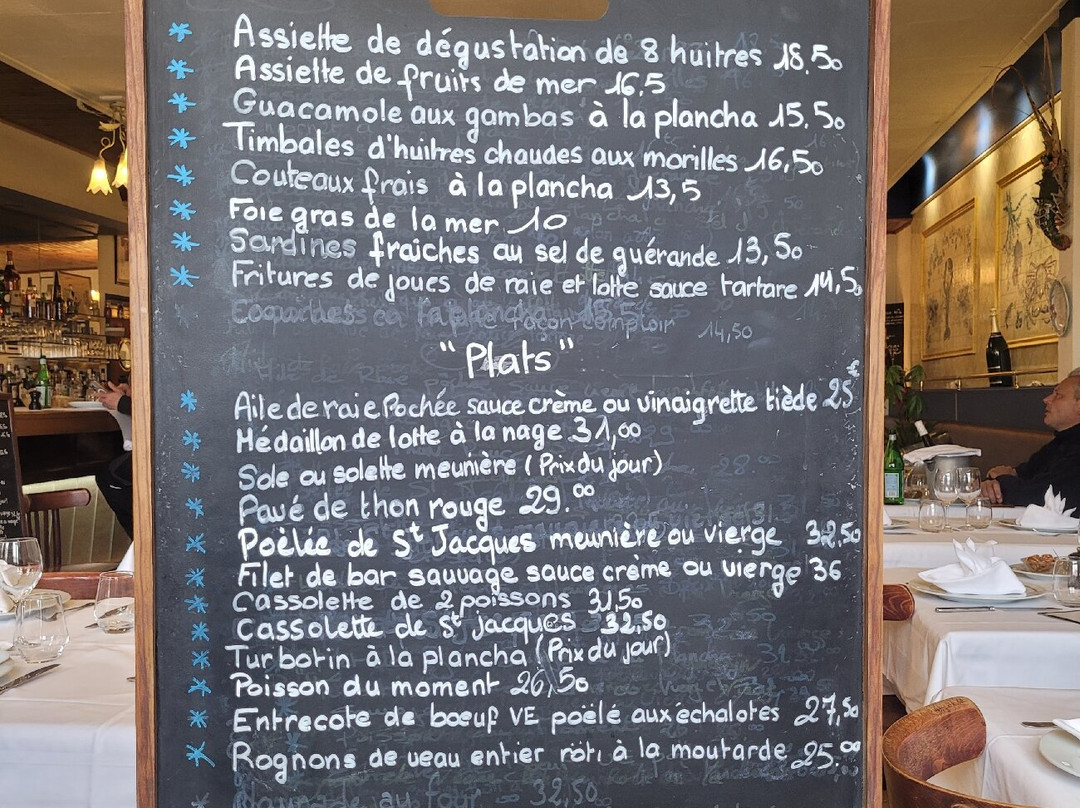 Assiette de dégustation de 8 huitres 18.50
Assiette de fruits de mer 16.5
Guacamole aux gambas à la plancha 15.50
Timbales d'huitres chaudes aux morilles 16,50
Couteaux frais à la plancha 13,5
Foie gras de la mer 10
Sardines fraiches au sel de guérande 13,50
Fritures de joues de raie et lotte sauce tartare 14,5
façon comptoir 14,50
"Plats"
Aile de raie Pochée sauce crème ou vinaigrette tiède 25€
Médaillon de lotte à la nage 31,00
Sole ou solette meunière (Prix du jour)
Pavé de thon rouge 29.00
Poêlée de St Jacques meunière ou vierge 32.50
Filet de bar sauvage sauce crème ou vierge 36
Cassolette de 2 poissons 31,50
Cassolette de St jacques 32,50
Turbotin à la plancha (Prix du jour)
Poisson du moment 26,50
Entrecote de bœuf VE poëlé aux échalotes 27,50
Rognons de veau entier rôti à la moutarde 25.00
au four 32,50